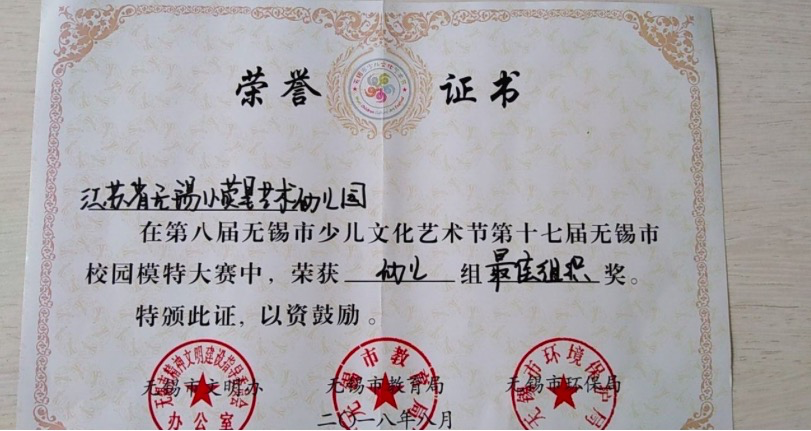 荣誉 证书
江苏省无锡小荧星艺术幼儿园
在第八届无锡市少儿文化艺术节第十七届无锡市
校园模特大赛中，荣获 幼儿 组 最佳组织 奖。
特颁此证，以资鼓励。
无锡市文明办 无锡市教育局 无锡市环保局
二〇一八年八月
无锡市精神文明建设指导委员会
办公室
无锡市教育局
无锡市环境保护局